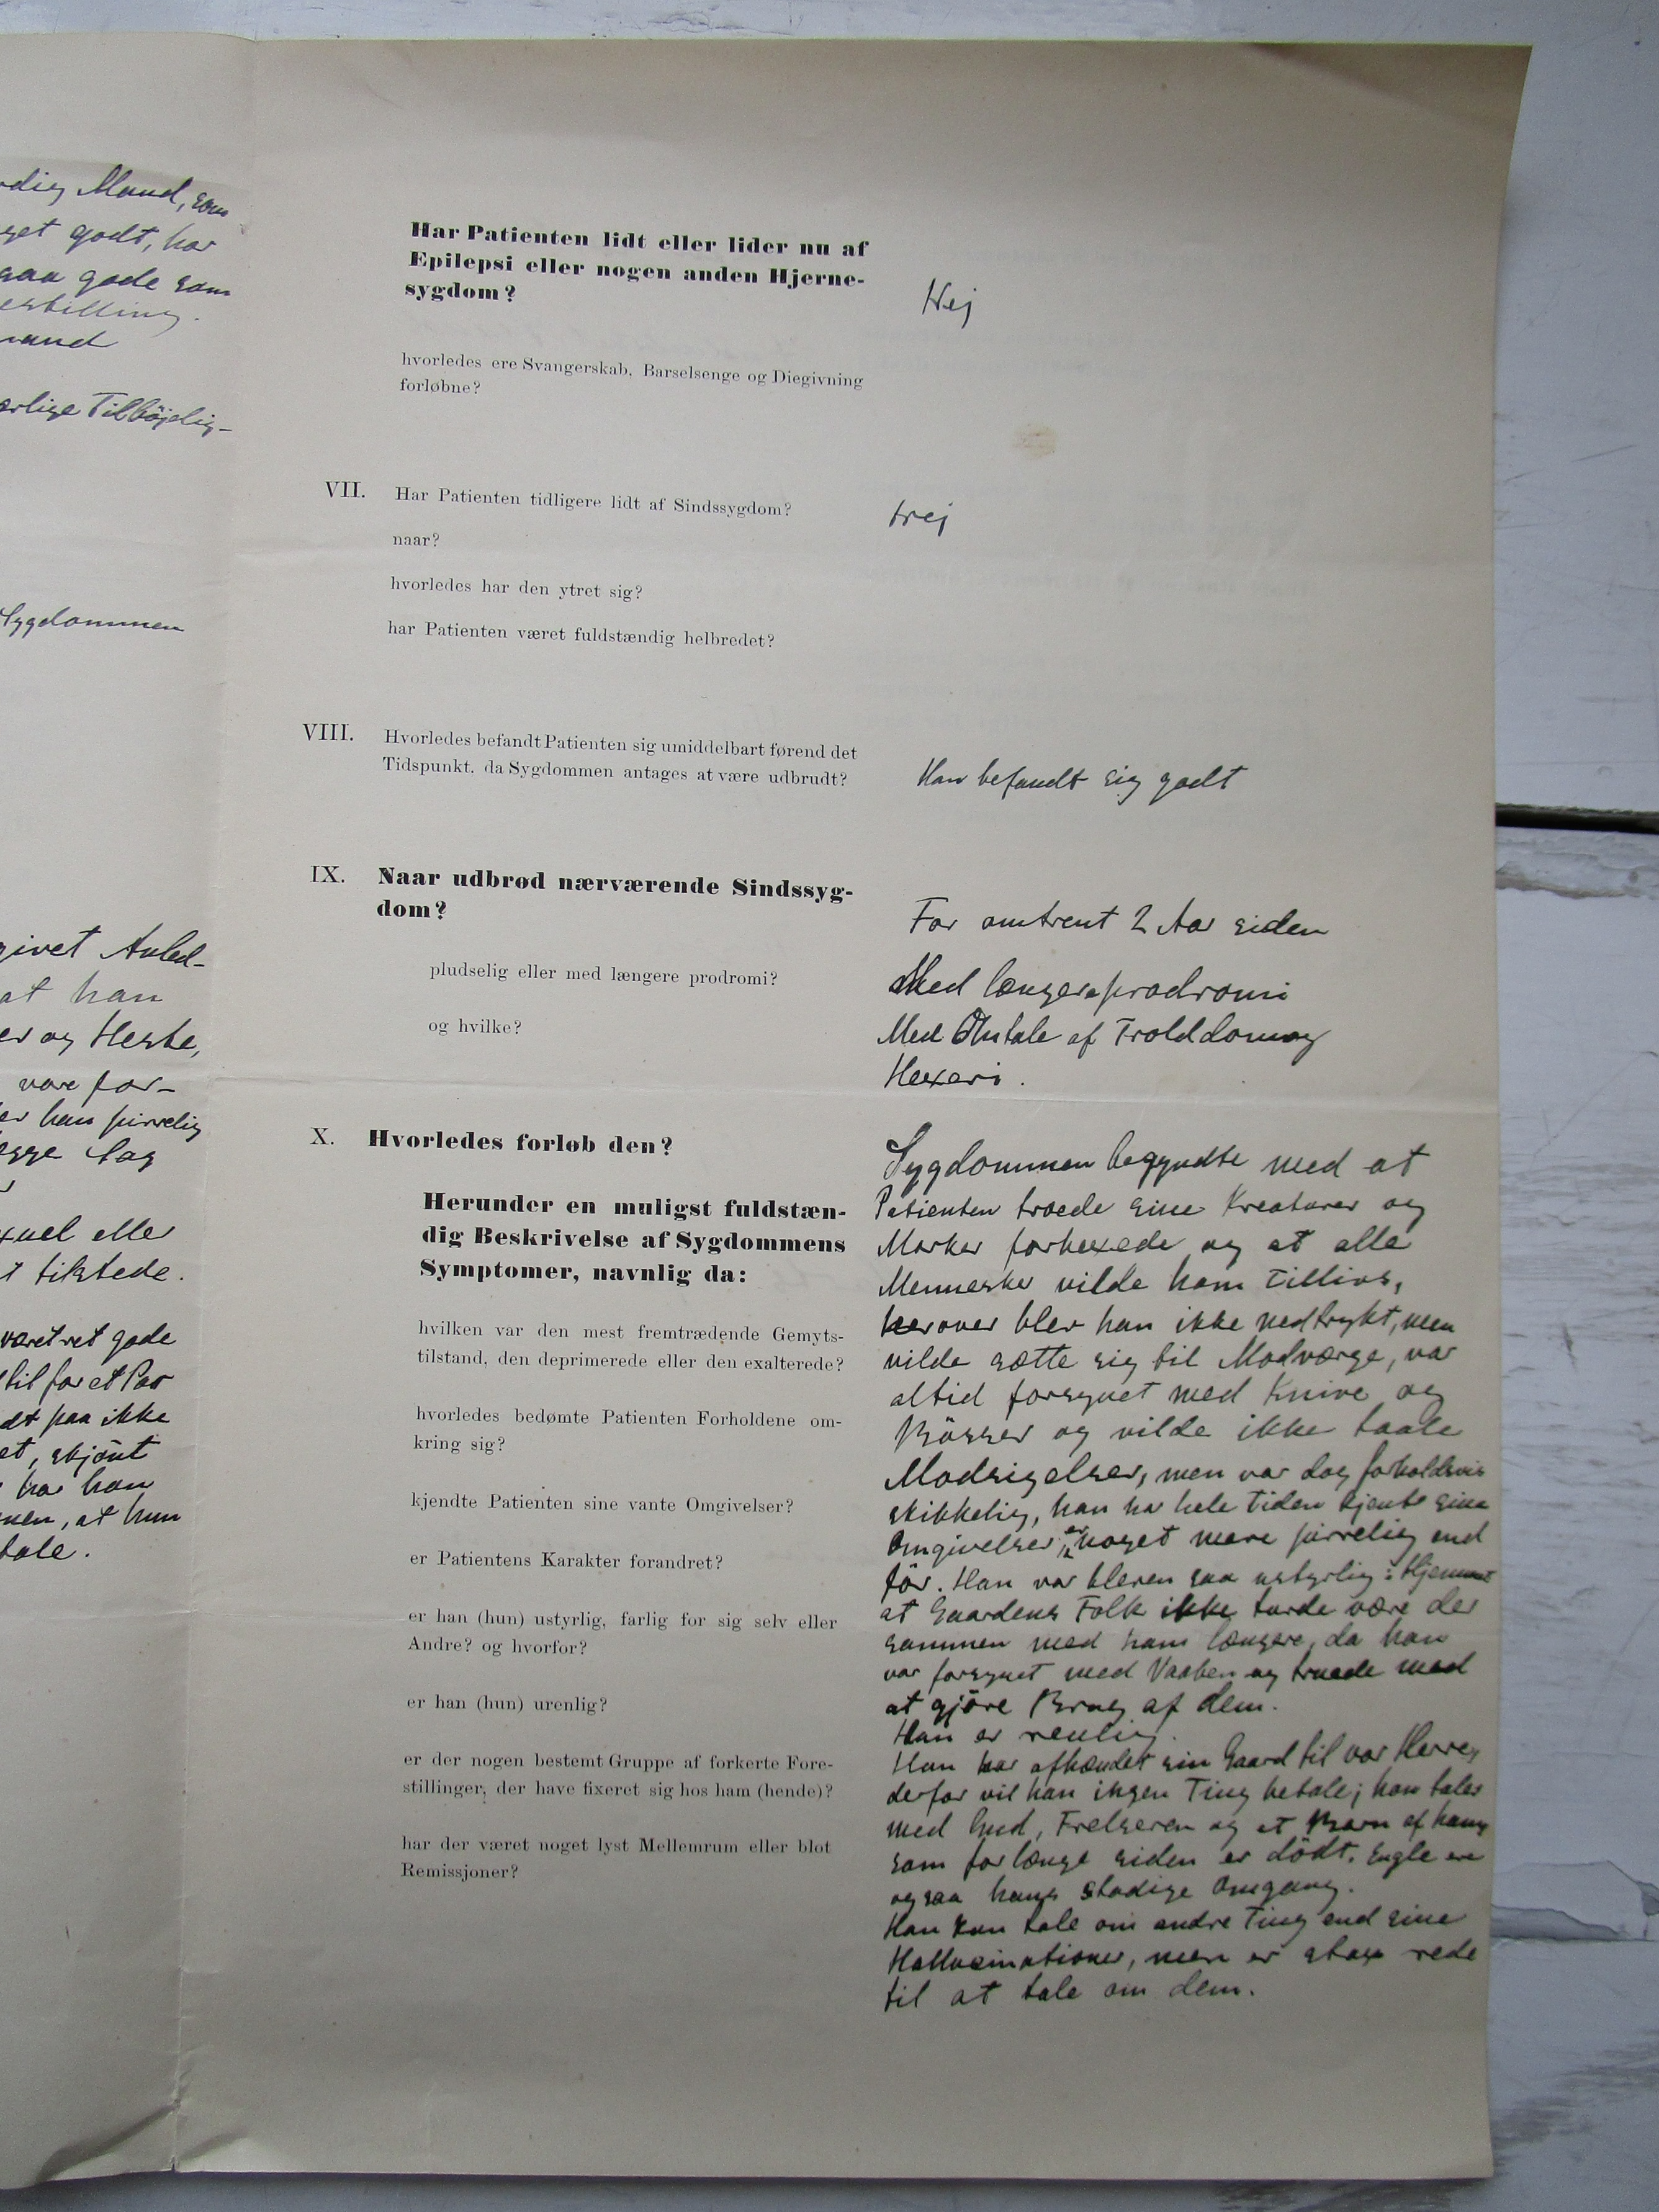 dig Mand, som
get godt, har
gaa gode som
estilling.
mand
erlige Tilböjelig-
Sygdommen
givet Anled-
at han
er og Heste,
vare for-
er han pirrelig
egge Sag
xuel eller
t tiltede.
været ret gode
til for et Par
dt paa ikke
et, skjönt
har han
men, at hun
tale.
Har Patienten lidt eller lider nu af
Epilepsi eller nogen anden Hjerne-
sygdom?
Nej
hvorledes ere Svangerskab, Barselsenge og Diegivning
forløbne?
VII. Har Patienten tidligere lidt af Sindssygdom?
Nej
naar?
hvorledes har den ytret sig?
har Patienten været fuldstændig helbredet?
VIII. Hvorledes befandt Patienten sig umiddelbart førend det
Tidspunkt. da Sygdommen antages at være udbrudt?
Han befandt sig godt
IX. Naar udbrød nærværende Sindssyg-
dom?
For omtrent 2 Aar siden
pludselig eller med længere prodromi?
Med længere prodromi
og hvilke?
Med Omtale af Trolddom og
Hexeri.
X. Hvorledes forløb den?
Herunder en muligst fuldstæn-
dig Beskrivelse af Sygdommens
Symptomer, navnlig da:
hvilken var den mest fremtrædende Gemyts-
tilstand, den deprimerede eller den exalterede?
hvorledes bedømte Patienten Forholdene om-
kring sig?
kjendte Patienten sine vante Omgivelser?
er Patientens Karakter forandret?
er han (hun) ustyrlig, farlig for sig selv eller
Andre? og hvorfor?
er han (hun) urenlig?
er der nogen bestemt Gruppe af forkerte Fore-
stillinger, der have fixeret sig hos ham (hende)?
har der været noget lyst Mellemrum eller blot
Remissjoner?
Sygdommen begyndte med at
Patienten troede sine Kreaturer og
Marker forhexede og at alle
Mennesker vilde ham tillivs,
herover blev han ikke nedtrykt, men
vilde sætte sig til Modværge, var
altid forsynet med Knive og
Bösser og vilde ikke taale
Modsigelser, men var dog forholdsvis
skikkelig, han har hele tiden kjendt sine
Omgivelser, er noget mere pirrelig end
för. Han var bleven saa ustyrlig i Hjemmet
at Gaardens Folk ikke turde være der
sammen med ham længere, da han
var forsynet med Vaaben og truede med
at gjöre Brug af dem.
Han er renlig.
Han har afhændet sin Gaard til vor Herre,
derfor vil han ingen Ting betale; han taler
med Gud, Frelseren og et Barn af ham
som for længe siden er dödt. Engle ere
ogsaa hans stadige Omgang.
Han kan tale om andre Ting end sine
Hallucinationer, men er strax rede
til at tale om dem.